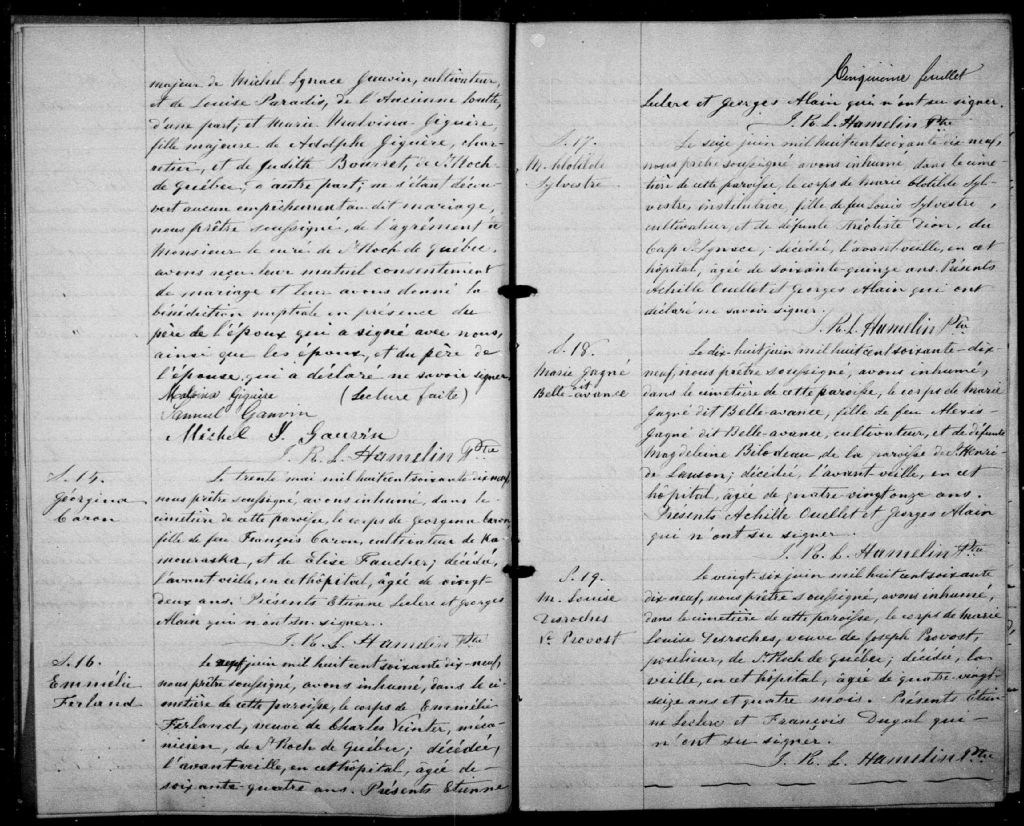 majeur de Michel Ignace Gauvin, cultivateur,
et de Louise Paradis, de l'Ancienne Lorette,
d'une part; et Marie Malvina Giguère,
fille majeure de Adolphe Giguère, char-
retier, et de Judith Bourret, de St. Roch
de Québec, d'autre part; ne s'étant décou-
vert aucun empêchement au dit mariage,
nous prêtre soussigné, de l'agrément de
Monsieur le curé de St. Roch de Québec,
avons reçu leur mutuel consentement
de mariage et leur avons donné la
bénédiction nuptiale en présence du
père de l'époux qui a signé avec nous,
ainsi que les époux, et du père de
l'épouse qui a déclaré ne savoir signer.
Malvina Giguère (Lecture faite)
Samuel Gauvin
Michel I. Gauvin
J. R. L. Hamelin Ptre
S. 15.
Georgina
Caron
Le trente mai mil huit cent soixante dix neuf,
nous prêtre soussigné, avons inhumé, dans le
cimetière de cette paroisse, le corps de Georgina Caron,
fille de feu François Caron, cultivateur de Ka-
mouraska, et de Elise Faucher; décédée,
l'avant veille, en cet hôpital, âgée de vingt
deux ans. Présents Etienne Leclerc et Georges
Alain qui n'ont su signer.
J. R. L. Hamelin Ptre
S. 16.
Emmélie
Ferland
Le neuf juin mil huit cent soixante dix-neuf,
nous prêtre soussigné, avons inhumé, dans le ci-
metière de cette paroisse, le corps de Emmélie
Ferland, veuve de Charles Veinter, méca-
nicien, de St. Roch de Québec; décédée,
l'avant-veille, en cet hôpital, âgée de
soixante-quatre ans. Présents Etienne
Cinquième feuillet
Leclerc et Georges Alain qui n'ont su signer.
J. R. L. Hamelin Ptre
S. 17.
M. Clotilde
Sylvestre
Le seize juin mil huit cent soixante dix neuf,
nous prêtre soussigné, avons inhumé, dans le cime
tière de cette paroisse, le corps de Marie Clotilde Syl-
vestre, institutrice, fille de feu Louis Sylvestre,
cultivateur, et de défunte Théotiste Dion, du
Cap St. Ignace; décédée, l'avant-veille, en cet
hôpital, âgée de soixante-quinze ans. Présents
Achille Ouellet et Georges Alain qui ont
déclaré ne savoir signer.
J. R. L. Hamelin Ptre
S. 18.
Marie Gagné
dit
Belle-avance
Le dix-huit juin mil huit cent soixante-dix-
neuf, nous prêtre soussigné, avons inhumé,
dans le cimetière de cette paroisse, le corps de Marie
Gagné dit Belle-avance, fille de feu Alexis
Gagné dit Belle-avance, cultivateur, et de défunte
Magdeleine Bilodeau de la paroisse de St. Henri
de Lauson; décédée, l'avant-veille, en cet
hôpital, âgée de quatre vingt onze ans.
Présents Achille Ouellet et Georges Alain
qui n'ont su signer.
J. R. L. Hamelin Ptre
S. 19.
M. Louise
Desroches
Ve. Provost
Le vingt-six juin mil huit cent soixante
dix-neuf, nous prêtre soussigné, avons inhumé,
dans le cimetière de cette paroisse, le corps de Marie
Louise Desroches, veuve de Joseph Provost,
poulieur, de St. Roch de Québec; décédée, la
veille, en cet hôpital, âgée de quatre-vingt-
seize ans et quatre mois. Présents Etien-
ne Leclerc et François Dugal qui
n'ont su signer.
J. R. L. Hamelin Ptre